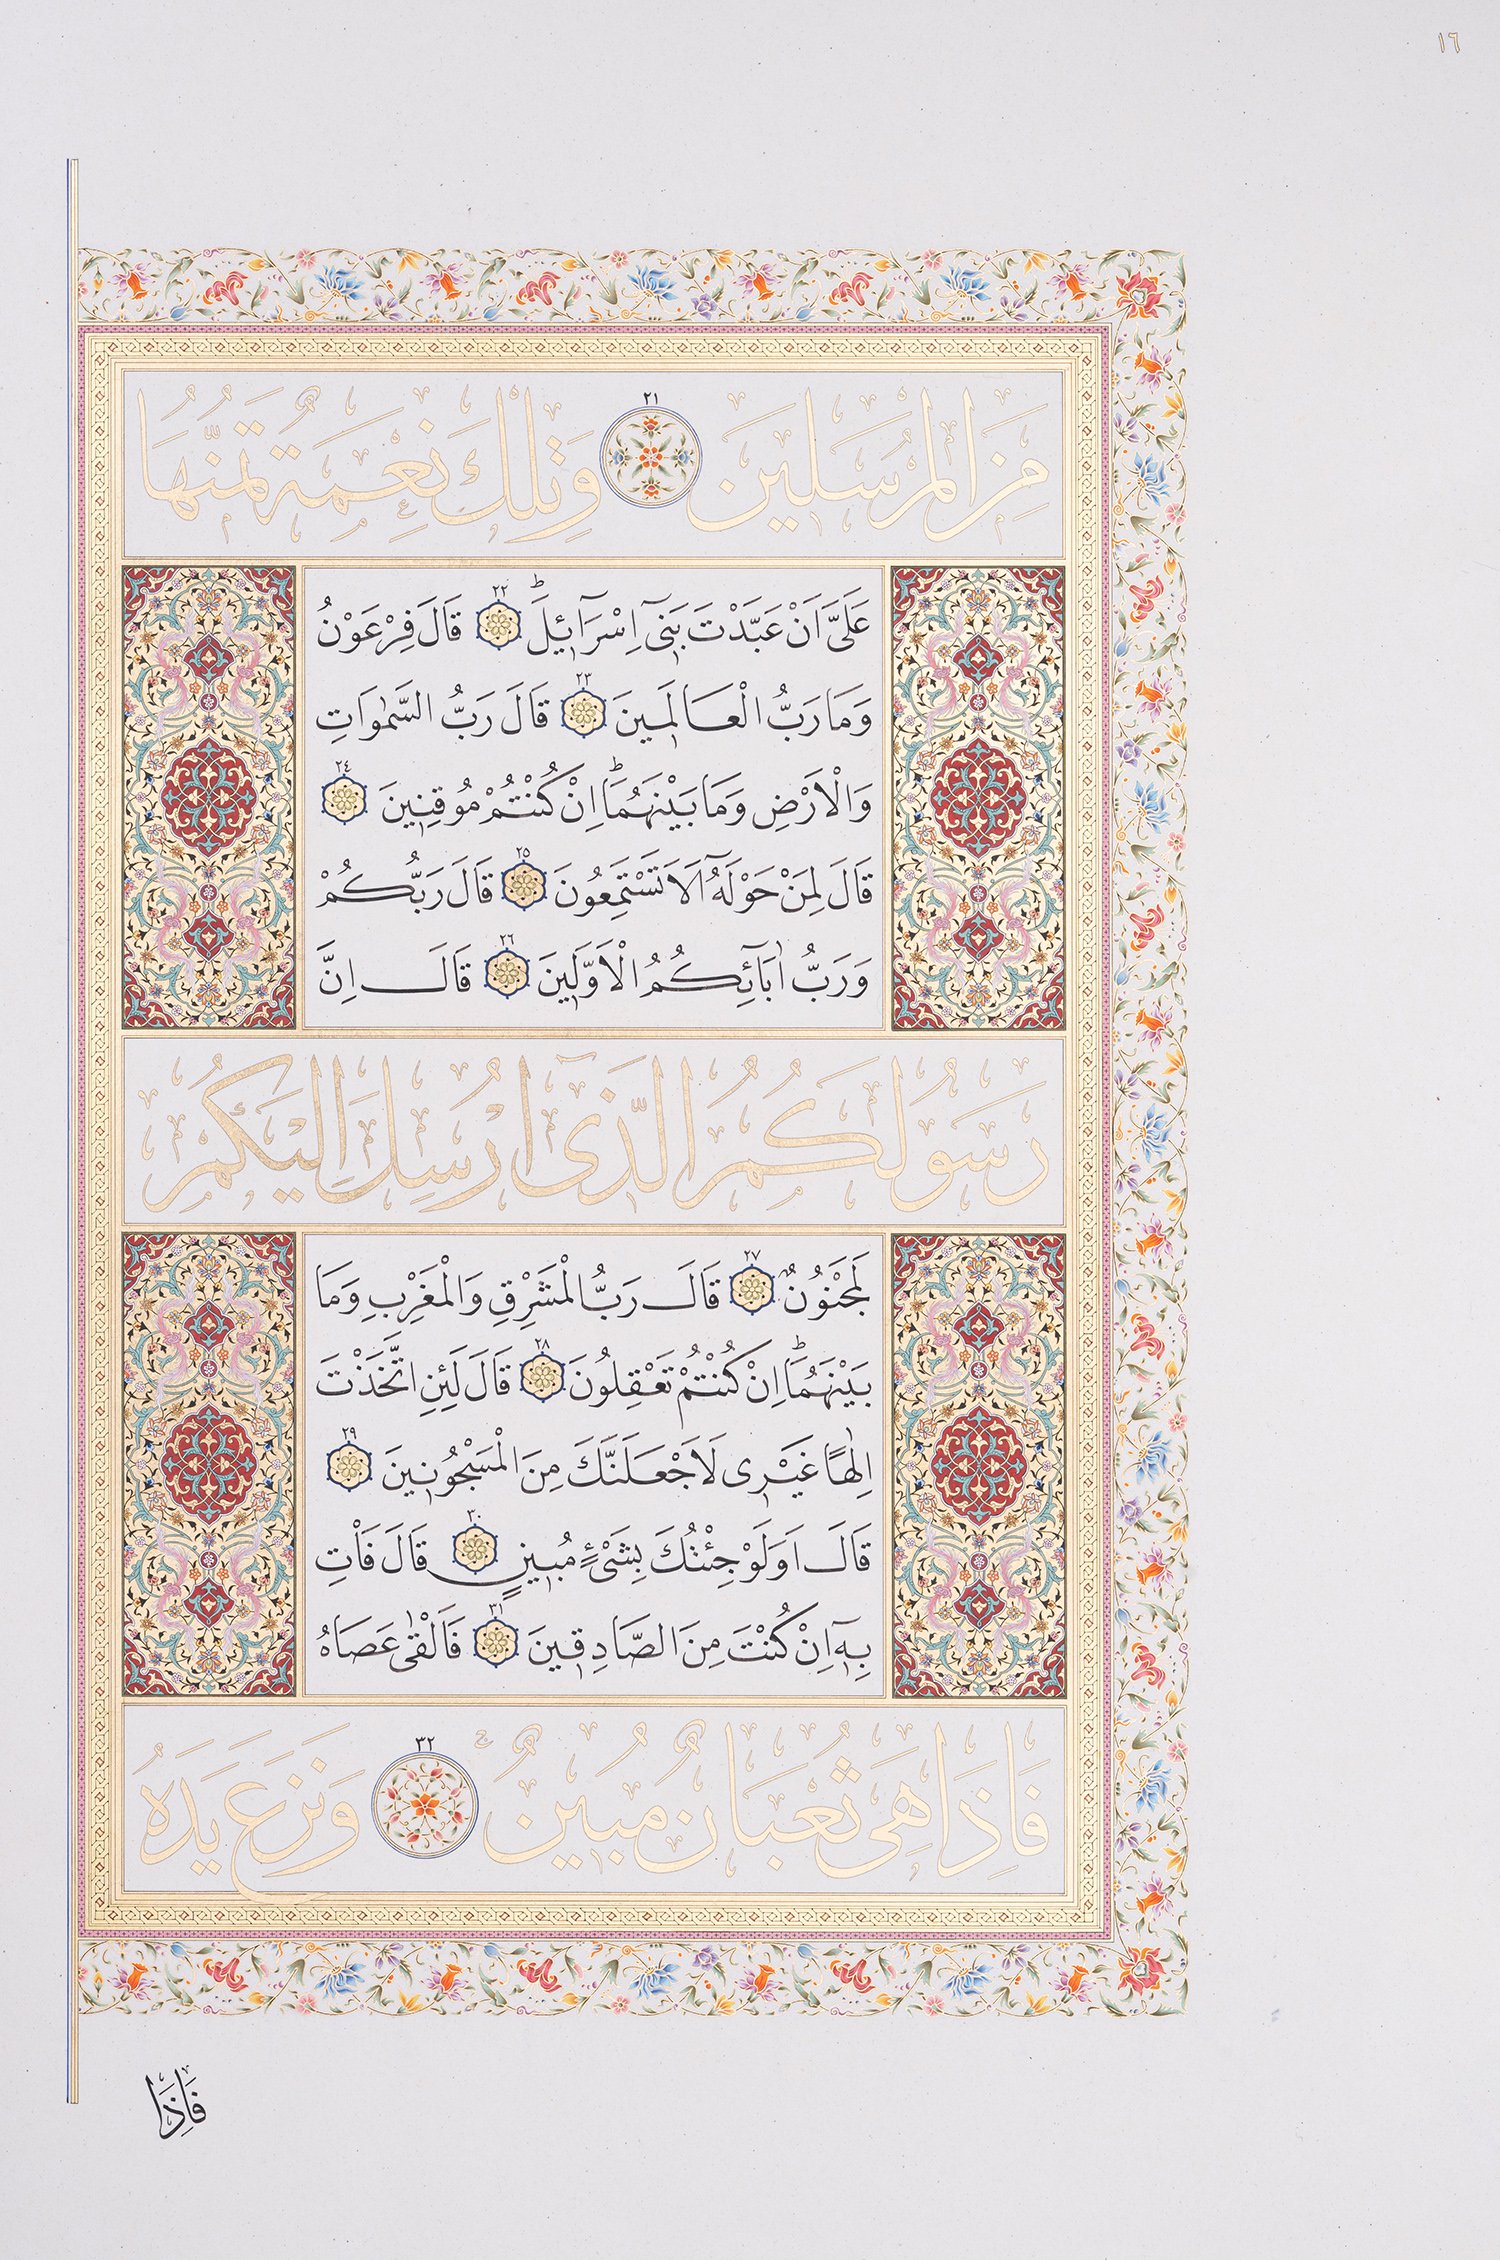 ١٦
مِنَ الْمُرْسَلِينَ ٢١ وَتِلْكَ نِعْمَةٌ تَمُنُّهَا
عَلَيَّ اَنْ عَبَّدْتَ بَنٖٓى اِسْرَٓائٖلَؕ ٢٢ قَالَ فِرْعَوْنُ
وَمَا رَبُّ الْعَالَمٖينَ ٢٣ قَالَ رَبُّ السَّمٰوَاتِ
وَالْاَرْضِ وَمَا بَيْنَهُمَاؕ اِنْ كُنْتُمْ مُوقِنٖينَ ٢٤
قَالَ لِمَنْ حَوْلَهُٓ اَلَا تَسْتَمِعُونَ ٢٥ قَالَ رَبُّكُمْ
وَرَبُّ اٰبَٓائِكُمُ الْاَوَّلٖينَ ٢٦ قَالَ اِنَّ
رَسُولَكُمُ الَّذٖٓى اُرْسِلَ اِلَيْكُمْ
لَمَجْنُونٌ ٢٧ قَالَ رَبُّ الْمَشْرِقِ وَالْمَغْرِبِ وَمَا
بَيْنَهُمَاؕ اِنْ كُنْتُمْ تَعْقِلُونَ ٢٨ قَالَ لَئِنِ اتَّخَذْتَ
اِلٰهًا غَيْرٖى لَاَجْعَلَنَّكَ مِنَ الْمَسْجُونٖينَ ٢٩
قَالَ اَوَلَوْ جِئْتُكَ بِشَیْءٍ مُبٖينٍ ٣٠ قَالَ فَأْتِ
بِهٖٓ اِنْ كُنْتَ مِنَ الصَّادِقٖينَ ٣١ فَاَلْقٰى عَصَاهُ
فَاِذَا هِىَ ثُعْبَانٌ مُبٖينٌۚ ٣٢ وَنَزَعَ يَدَهُ
فَاِذَا